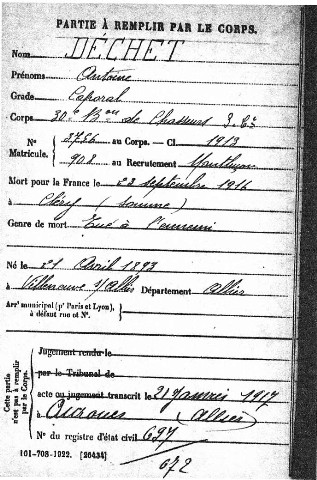 PARTIE À REMPLIR PAR LE CORPS.
Nom DÉCHET
Prénoms Antoine
Grade Caporal
Corps 30e Bon de Chasseurs
N° 3756 au Corps. — Cl 1913
Matricule. 908 au Recrutement Montluçon
Mort pour la France le 23 septembre 1916
à Cléry (Somme)
Genre de mort Tué à l'ennemi
Né le 21 Avril 1893
à Villeneuve s/ Allier Département Allier
Arrt municipal (pr Paris et Lyon), à défaut rue et N°.
Cette partie n'est pas à remplir par le Corps.
Jugement rendu le
par le Tribunal de
acte ou jugement transcrit le 21 janvier 1917
à (Allier)
N° du registre d'état civil 627
672
101-708-1922. [26434]